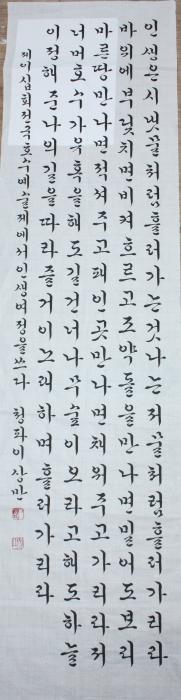 인생은 시냇물처럼 흘러가는 것 나는 저 물처럼 흘러가리라
바위에 부딪치면 비켜 흐르고 조약돌을 만나면 밀어도 보리
마른땅 만나면 적셔주고 패인 곳 만나면 채워주고 가리라 저
너머 호수가 유혹을 해도 길 건너 나무숲이 오라고 해도 하늘
이 정해준 나의 길을 따라 즐거이 노래하며 흘러가리라
제이십회 전국호수예술제에서 인생여정을 쓰다 청파 이상만